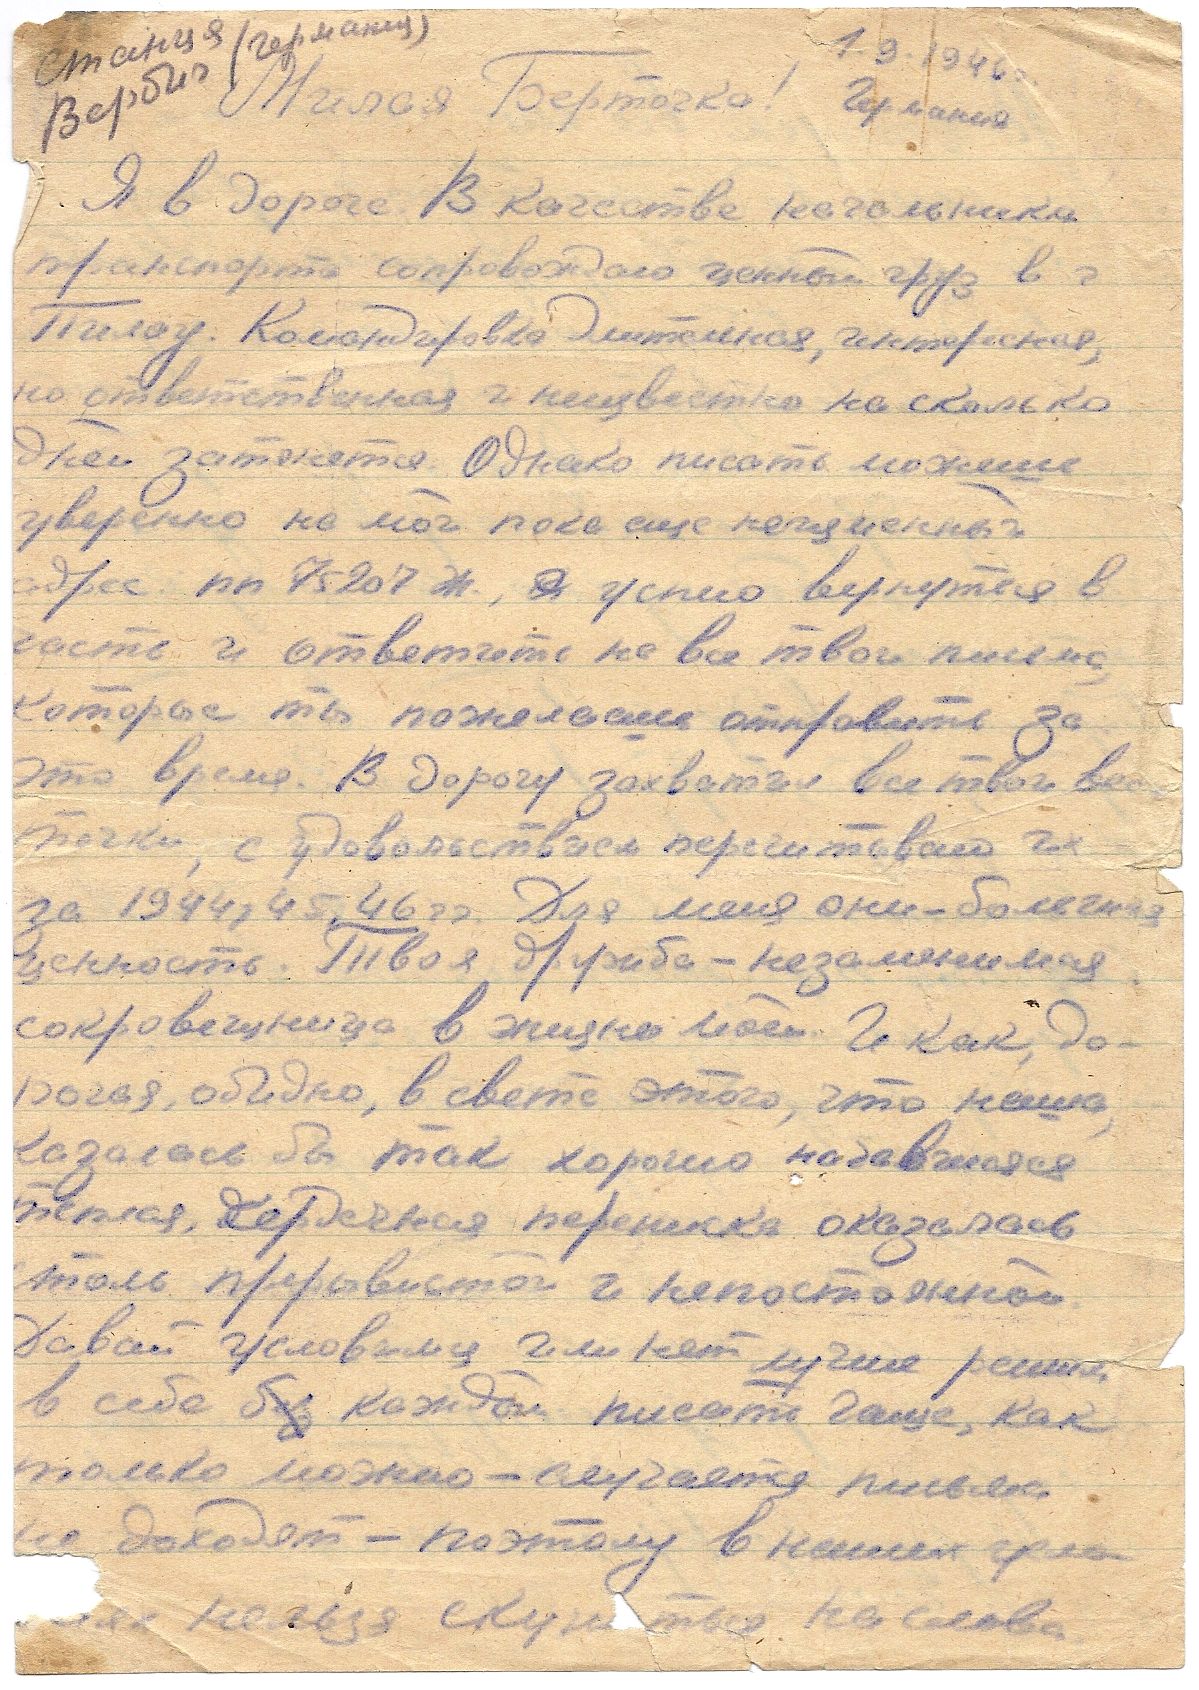 Станция (Германия)
Вербиг
1.9.1946
Германия
Милая Берточка!
Я в дороге. В качестве начальника
транспорта сопровождаю ценный груз в г
Пилау. Командировка длительная, интересная,
но ответственная и неизвестно на сколько
дней затянется. Однако писать можешь
уверенно на мой пока еще неизменный
адрес. пп 75207 Ж., я успею вернуться в
часть и ответить на все твои письма,
которые ты пожелаешь отправить за
это время. В дорогу захватил все твои вес
точки, с удовольствием перечитываю их
за 1944, 45, 46 гг. Для меня они – большая
ценность. Твоя дружба – незаменимая
сокровищница в жизни моей. И как, до-
рогая, обидно, в свете этого, что наша,
казалось бы так хорошо
теплая, сердечная переписка оказалась
столь прерывистой и непостоянной.
Давай условимся или нет лучше решим
в себе каждый писать чаще, как
только можно – случается письма
не доходят – поэтому в наших
нельзя скупиться на слова.